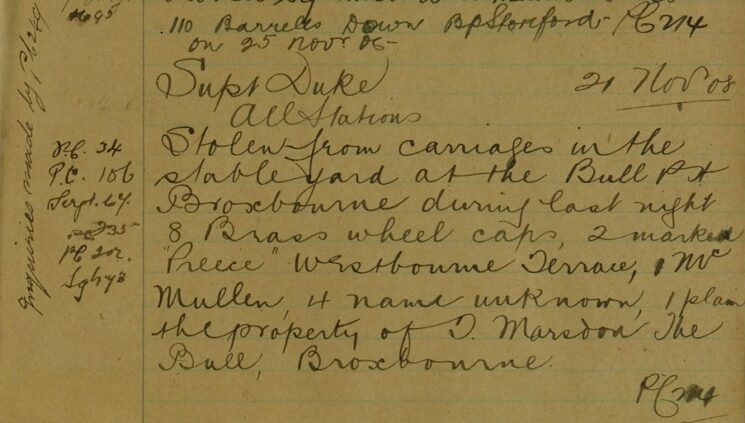 110 Barrells Down BpStortford
on 25 Novr 05
Supt Duke 21 Nov 08
All Stations
Stolen from carriages in the
stable yard at the Bull P H
Broxbourne during last night
8 Brass wheel caps, 2 marked
"Preece" Westbourne Terrace, 1 Mc
Mullen, 4 name unknown, 1 plain
the property of T. Marsdon The
Bull, Broxbourne.
Inquiries made by
No 95
P.C. 34
P.C. 106
Sergt. 64
PC 235
PC 202